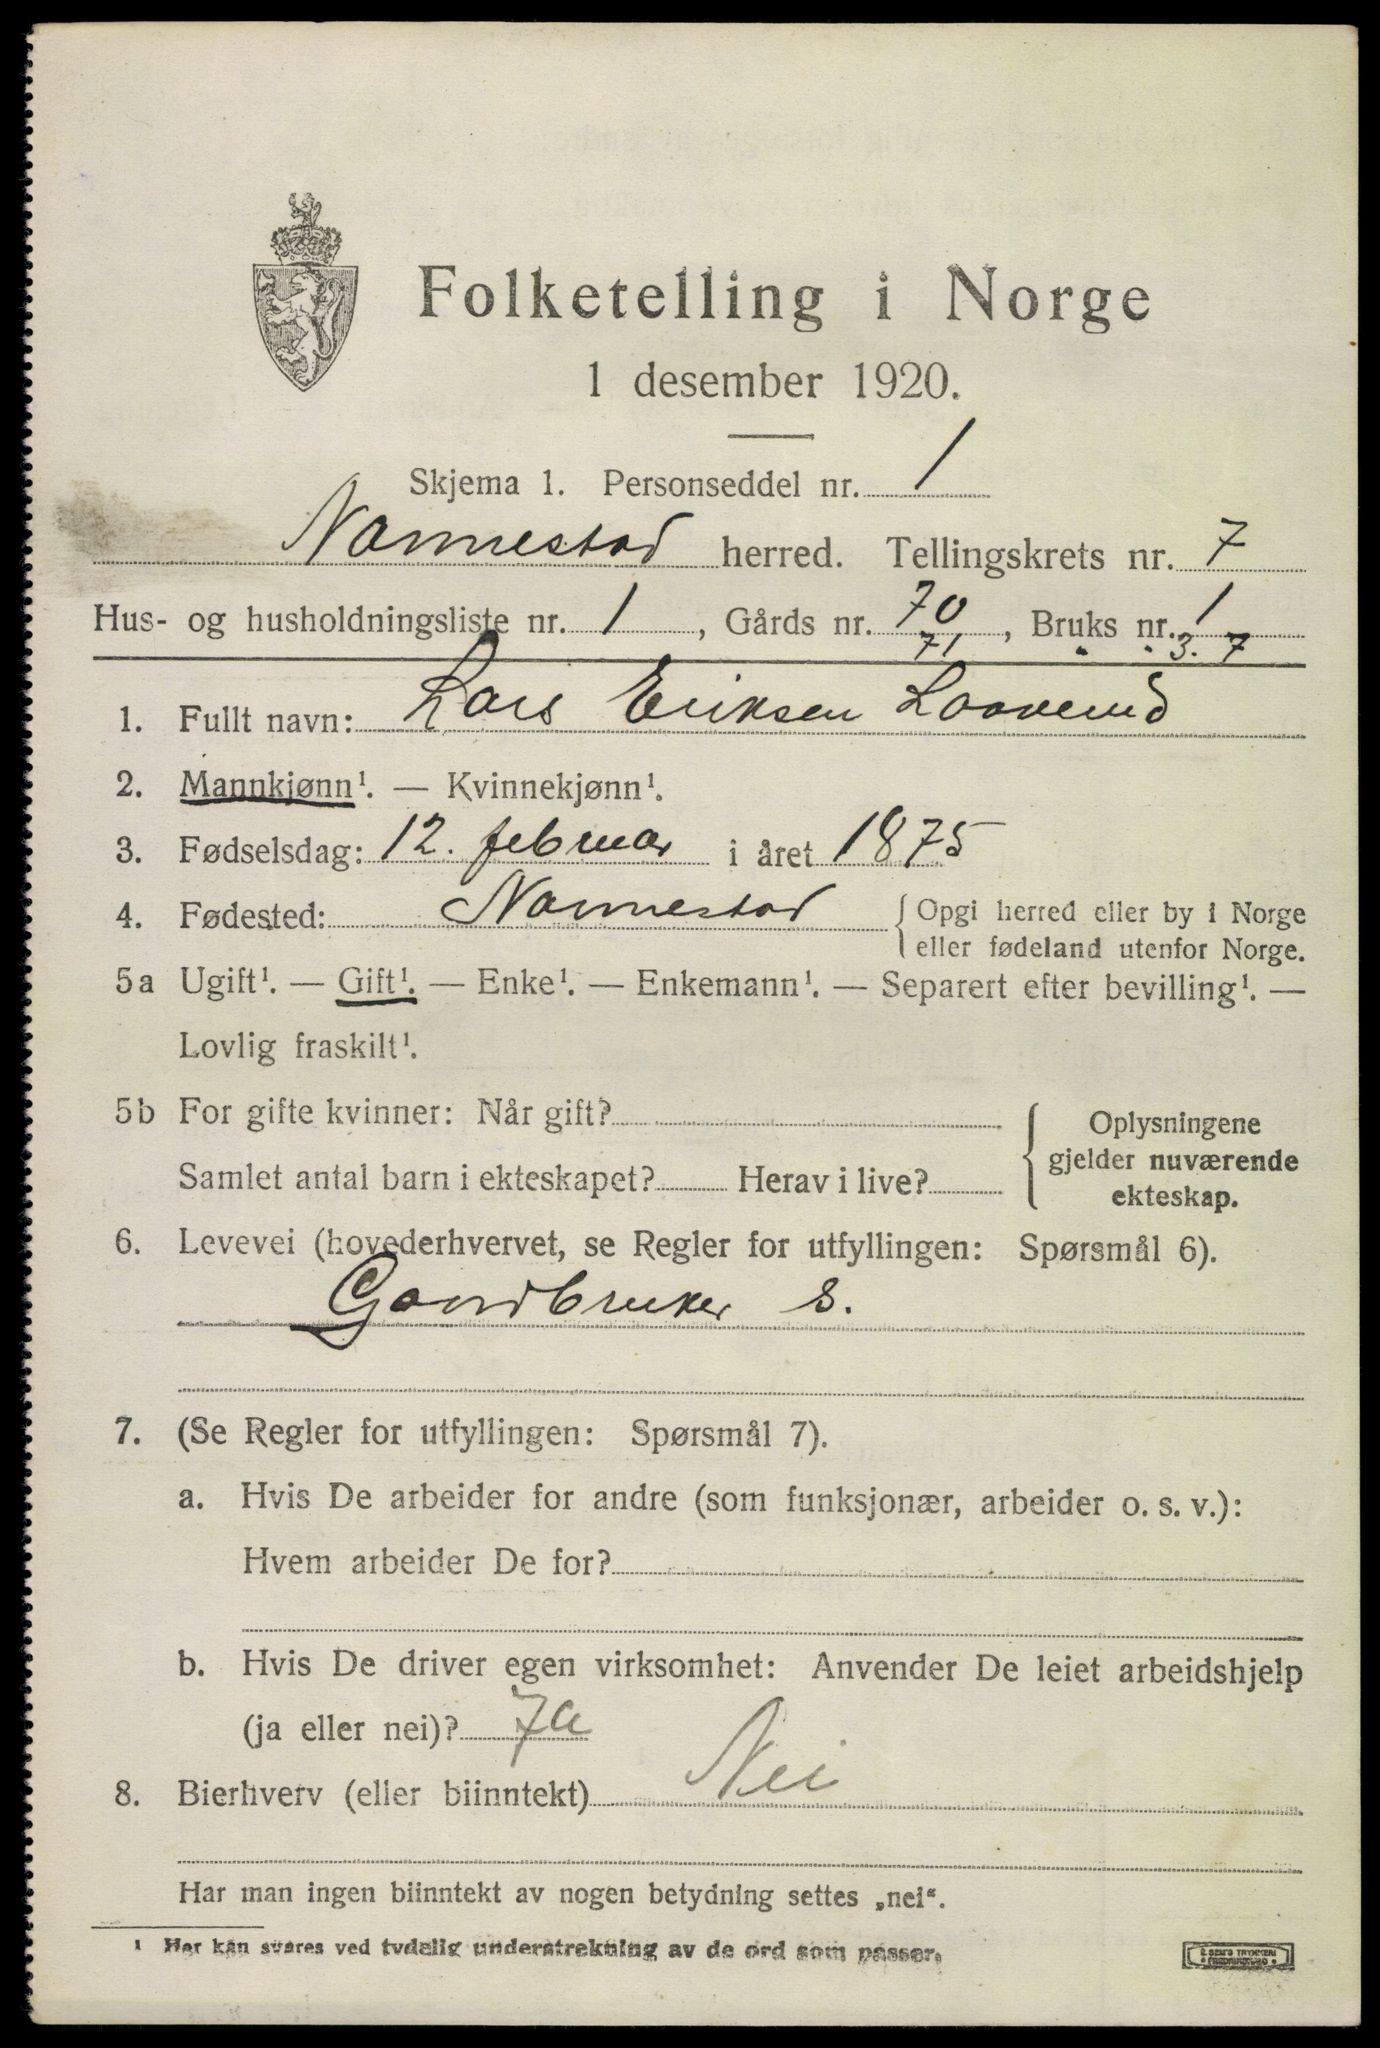 Folketelling i Norge
1 desember 1920.
Skjema 1. Personseddel nr. 1
Nannestad herred. Tellingskrets nr. 7
Hus- og husholdningsliste nr. 1, Gårds nr. 70, Bruks nr. 1
71 " " 3. 7
1. Fullt navn: Lars Eriksen Laaverud
2. Mannkjønn¹. — Kvinnekjønn¹.
3. Fødselsdag: 12. februar i året 1875
4. Fødested: Nannestad { Opgi herred eller by i Norge
eller fødeland utenfor Norge.
5a Ugift¹. — Gift¹. — Enke¹. — Enkemann¹. — Separert efter bevilling¹. —
Lovlig fraskilt¹.
5b For gifte kvinner: Når gift?
Samlet antal barn i ekteskapet? Herav i live?
{ Oplysningene
gjelder nuværende
ekteskap.
6. Levevei (hovederhvervet, se Regler for utfyllingen: Spørsmål 6).
Gardbruker S.
7. (Se Regler for utfyllingen: Spørsmål 7).
a. Hvis De arbeider for andre (som funksjonær, arbeider o. s. v.):
Hvem arbeider De for?
b. Hvis De driver egen virksomhet: Anvender De leiet arbeidshjelp
(ja eller nei)? Ja
8. Bierhverv (eller biinntekt) Nei
Har man ingen biinntekt av nogen betydning settes „nei“.
¹ Her kan svares ved tydelig understrekning av de ord som passer.